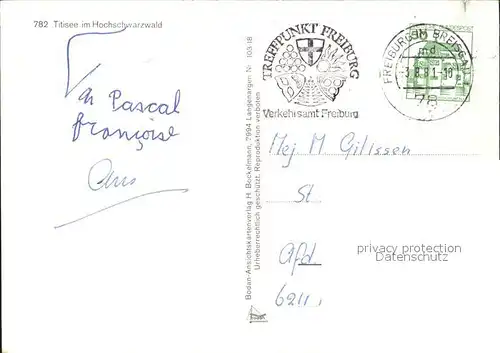 782 Titisee im Hochschwarzwald
Pascal
françoise
Bodan-Ansichtskartenverlag H. Bockelmann, 2994 Langenargen Nr. 103 18
Urheberrechtlich geschützt. Reproduktion verboten
TREFFPUNKT FREIBURG
Verkehrsamt Freiburg
FREIBURG IM BREISGAU 1
md
-3.8.81-10
78
Mej M Gilissen
St
Afd.
6211
privacy protection
Datenschutz